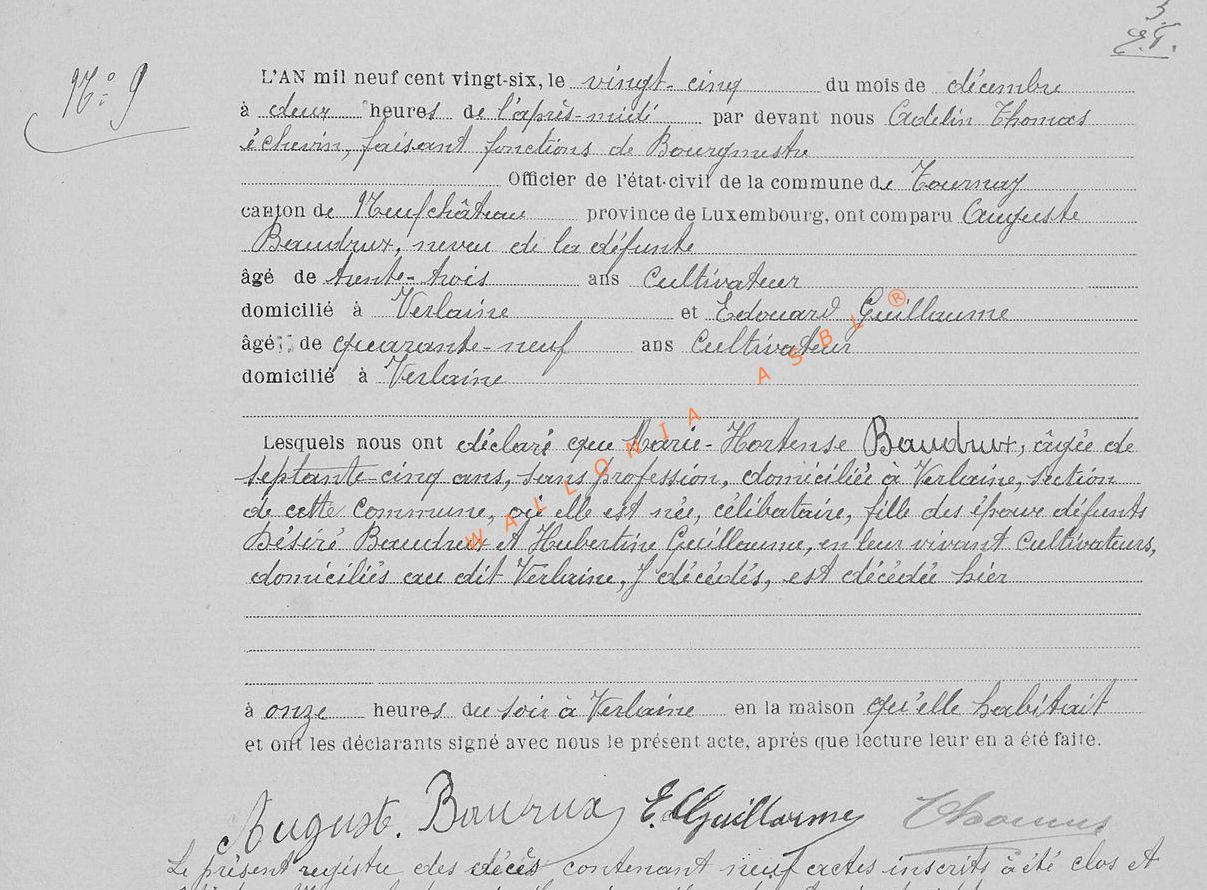 3.
E.T.
N° 9
L'AN mil neuf cent vingt-six, le vingt-cinq du mois de décembre
à deux heures de l'après-midi par devant nous Adelin Thomas
échevin, faisant fonctions de Bourgmestre
Officier de l'état-civil de la commune de Tournay
canton de Neufchâteau province de Luxembourg, ont comparu Auguste
Baudrux, neveu de la défunte
âgé de trente-trois ans Cultivateur
domicilié à Verlaine et Edouard Guillaume
âgé de quarante-neuf ans Cultivateur
domicilié à Verlaine
Lesquels nous ont déclaré que Marie-Hortense Baudrux, âgée de
septante-cinq ans, sans profession, domiciliée à Verlaine, section
de cette Commune, où elle est née, célibataire, fille des époux défunts
Désiré Baudrux et Hubertine Guillaume, en leur vivant Cultivateurs,
domiciliés au dit Verlaine, y décédés, est décédée hier
à onze heures du soir à Verlaine en la maison qu'elle habitait
et ont les déclarants signé avec nous le présent acte, après que lecture leur en a été faite.
Auguste. Baudrux E. Guillaume Thomas
Le présent registre des décès contenant neuf actes inscrits a été clos et
WALLONIA ASBL ®